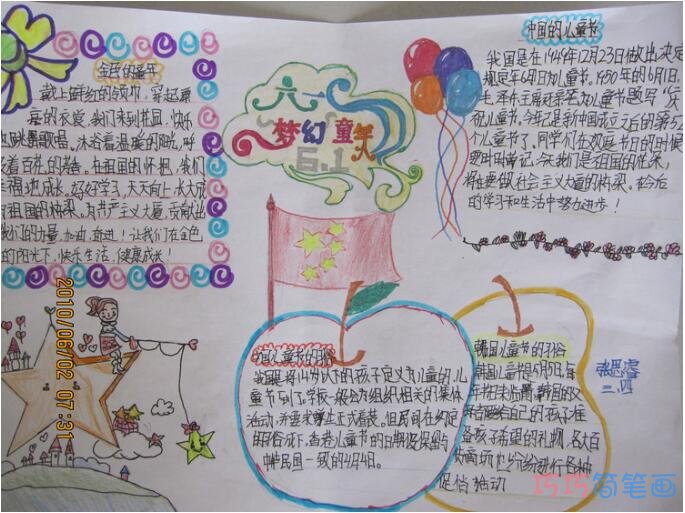 金色的童年
戴上鲜红的领巾，穿起漂
亮的衣裳，我们来到花园，快乐
地跳舞歌唱。沐浴着温暖的阳光，呼
着百花的芳香。在祖国的怀抱，我们
幸福地成长。好好学习，天天向上，长大成
为祖国的栋梁。为共产主义大厦，贡献出
我们的力量。加油，奋进！让我们在金色
的阳光下，快乐生活，健康成长！
六一
梦幻童年
6.1
中国的儿童节
我国是在1949年12月23日做出决定
规定6月1日为儿童节。1950年的6月1日，
毛泽东主席还亲笔为儿童节题写"庆
祝儿童节。今年是新中国成立后的第
个儿童节了。同学们在欢度节日的时候
要时时牢记，今天我们是祖国的花朵，
将来要做社会主义大厦的栋梁。在今后
的学习和生活中努力进步！
我国儿童节的习俗
我国是将14岁以下的孩子定义为儿童的。儿
童节到了，学校一般会为组织相关的集体
活动，并要求学生正式着装。但民间在约定
的俗下，香港儿童节的日期仍保留与
中华民国一致的4月4日。
韩国儿童节的习俗
韩国儿童节是5月5日，每
自己的孩子准
备孩子希望的礼物，各大百
货商场也纷纷进行各种
促销活动
三、四
2010/06/02 07:31
巧巧简笔画